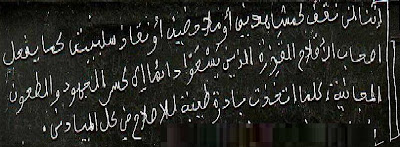 أننا لن نقف كمشاهدين أو ملاحظين أو نقاد سلبيين كما يفعل
أصحاب الأقلام القذرة الذين يسعون دائما إلى كسر الجهود والطعون
المجانية، كلما اتخذت مبادرة طيبة للإصلاح في كل الميادين.